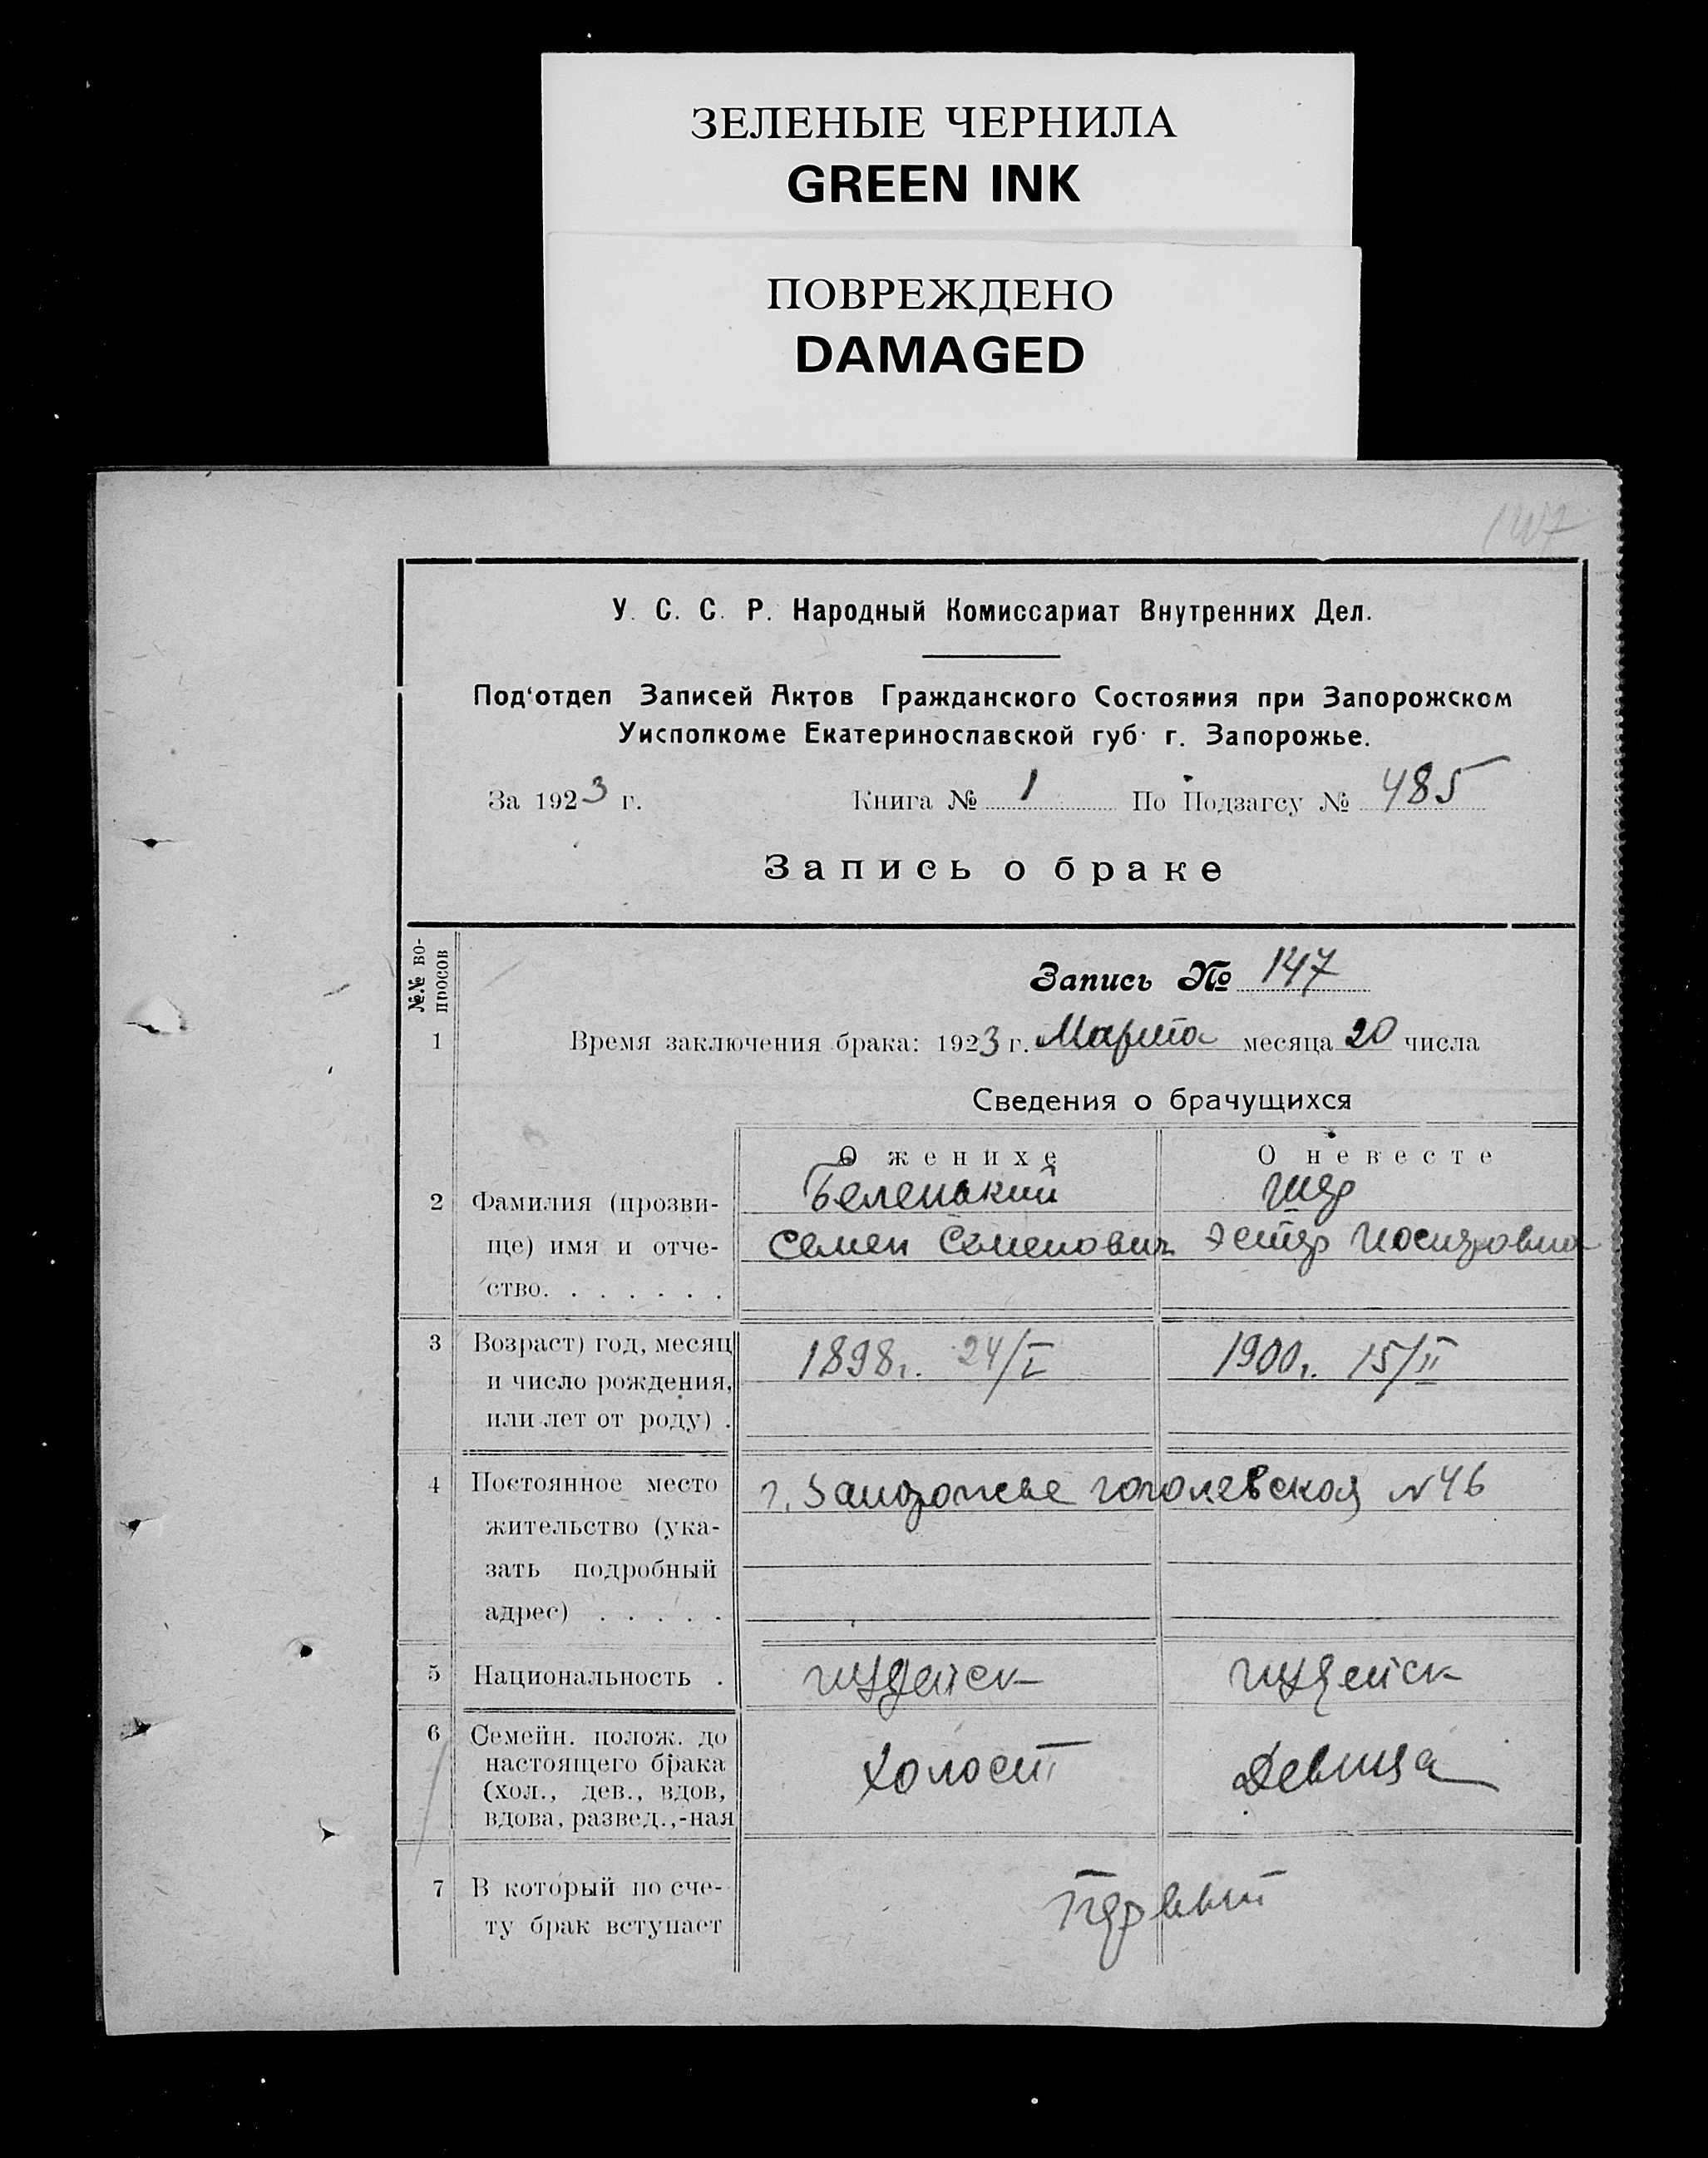 ЗЕЛЕНЫЕ ЧЕРНИЛА
GREEN INK
ПОВРЕЖДЕНО
DAMAGED
147
У. С. С. Р. Народный Комиссариат Внутренних Дел.
Под‘отдел Записей Актов Гражданского Состояния при Запорожском
Уисполкоме Екатеринославской губ. г. Запорожье.
За 1923 г. Книга № 1 По Подзагсу № 485
Запись о браке
№.№ во-
просов
Запись № 147
1 Время заключения брака: 1923 г. Марта месяца 20 числа
Сведения о брачущихся
О женихе О невесте
2 Фамилия (прозви- Беленький Шер
ще) имя и отче- Семен Семенович Эстер Иосифовна
ство. . . . . . .
3 Возраст) год, месяц 1898г. 24/I 1900г. 15/II
и число рождения,
или лет от роду) .
4 Постоянное место г. Запорожье Гоголевская №46
жительство (ука-
зать подробный
адрес) . . . . .
5 Национальность . иудейск иудейск
6 Семейн. полож. до
настоящего брака холост девица
(хол., дев., вдов,
вдова, развед.,-ная
7 В который по сче- Первый
ту брак вступает